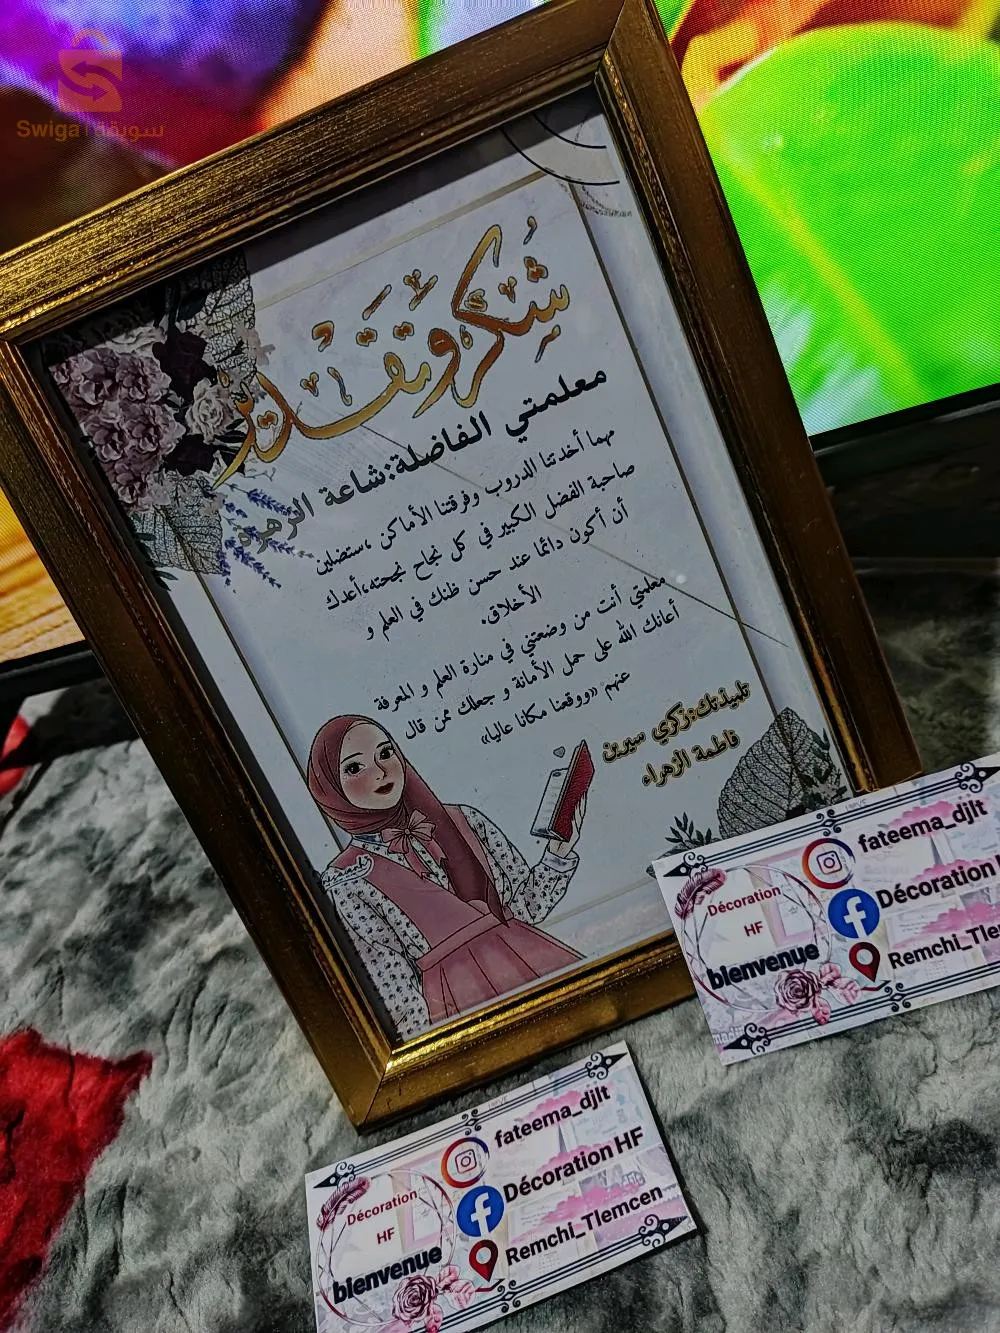 Swiga | سويقة
شُكر وتقدير
معلمتي الفاضلة:شاعة الزهراء
مهما أخدتنا الدروب وفرقتنا الأماكن ،ستضلين
صاحبة الفضل الكبير في كل نجاح نجحته،أعدك
أن أكون دائما عند حسن ظنك في العلم و
الأخلاق.
معلمتي أنت من وضعتني في منارة العلم و المعرفة
أعانك الله على حمل الأمانة و جعلك ممن قال
عنهم «ووقعنا مكانا عاليا»
تلميذتك:زكري سيرين
فاطمة الزهراء
Décoration
HF
bienvenue
fateema_djlt
Décoration
Remchi_Tlem
Décoration
HF
bienvenue
fateema_djlt
Décoration HF
Remchi_Tlemcen